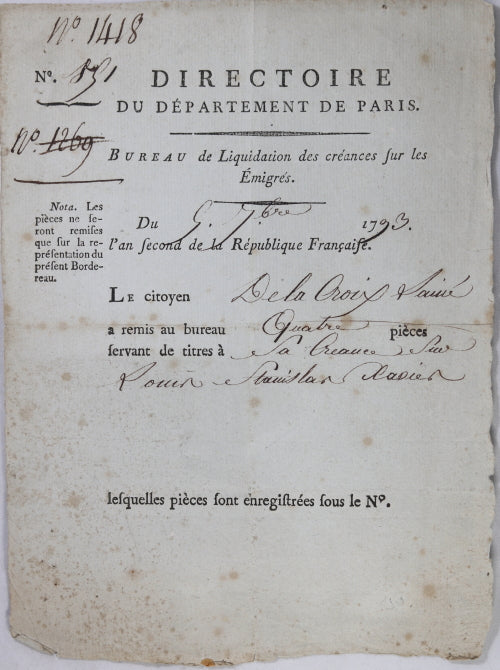 Nº. 1418
Nº. 151
DIRECTOIRE
DU DÉPARTEMENT DE PARIS.
Nº. 1269
BUREAU de Liquidation des créances ſur les
Émigrés.
Nota. Les
pièces ne ſe-
ront remiſes
que ſur la re-
préſentation du
préſent Borde-
reau.
Du 5. 7.bre 1793.
l'an ſecond de la République Françaiſe.
LE citoyen De la Croix l'ainé
a remis au bureau Quatre pièces
ſervant de titres à Sa Creance Sur
Louis Stanislas Xavier
leſquelles pièces ſont enregiſtrées ſous le Nº.